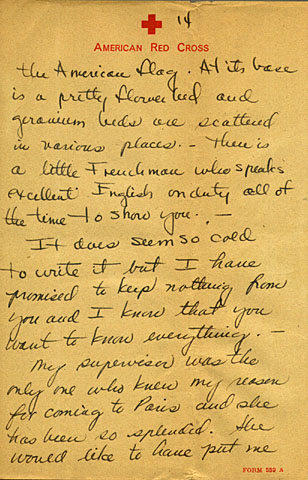 14
AMERICAN RED CROSS
the American flag. At its base
is a pretty flower bed and
geranium beds are scattered
in various places. - There is
a little Frenchman who speaks
excellent English on duty all of
the time to show you. -
It does seem so cold
to write it but I have
promised to keep nothing from
you and I know that you
want to know everything. -
My supervisor was the
only one who knew my reason
for coming to Paris and she
has been so splendid. She
would like to have put me
FORM 539 A